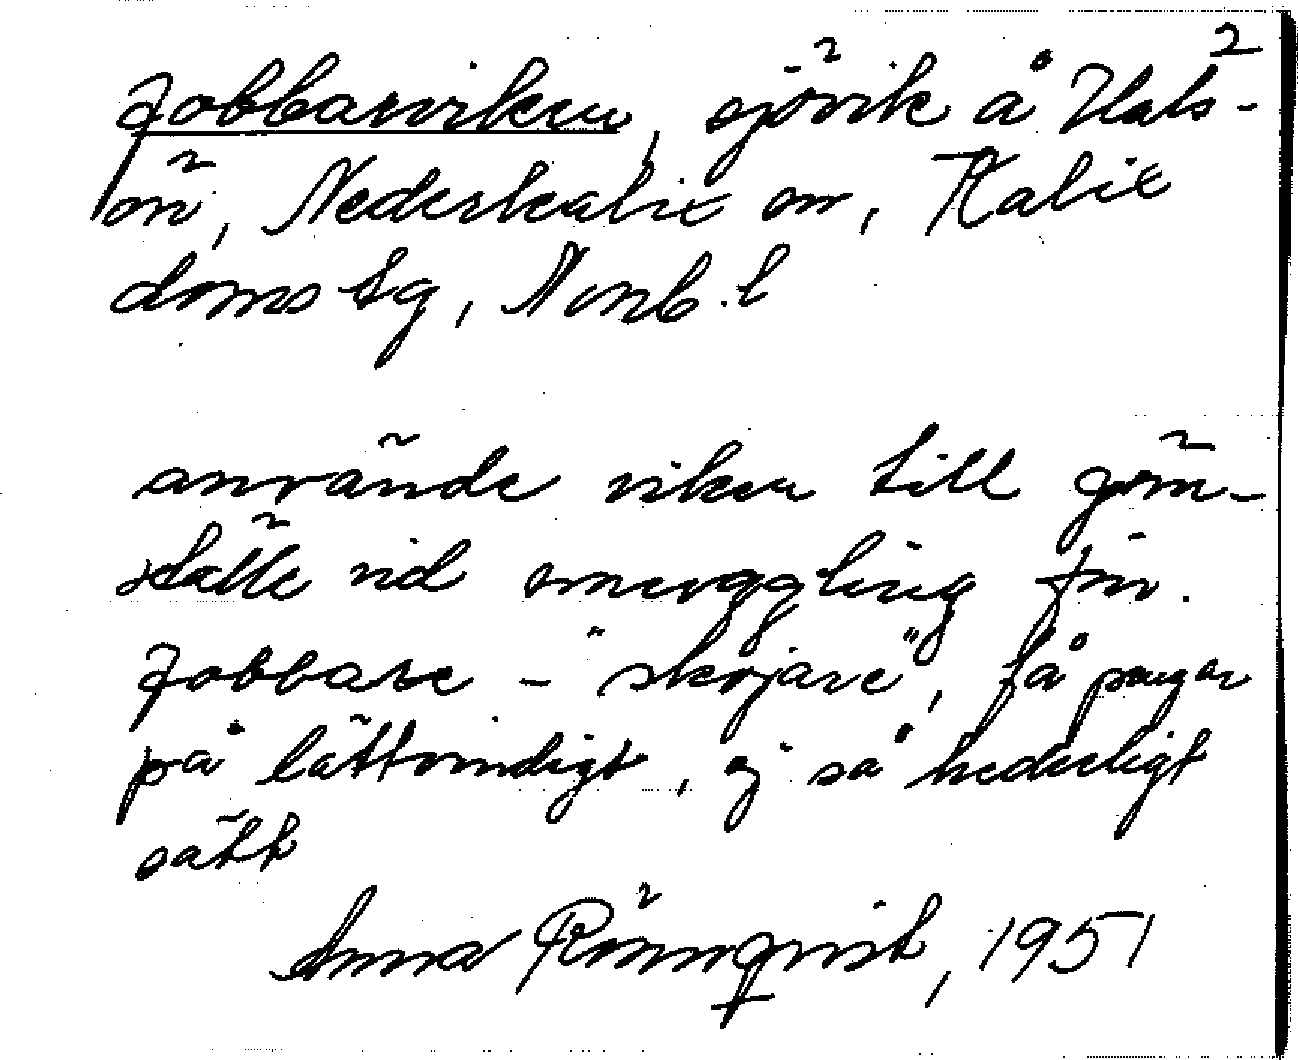 2
Jobbarviken, sjövik å Hals-
ön, Nederkalix sn, Kalix
doms tg, Norrb. l
använde viken till göm-
ställe vid smuggling för.
Jobbare - "skojare", få pengar
på lättvindigt, ej så hederligt
sätt
Anna Rönnqvist, 1951